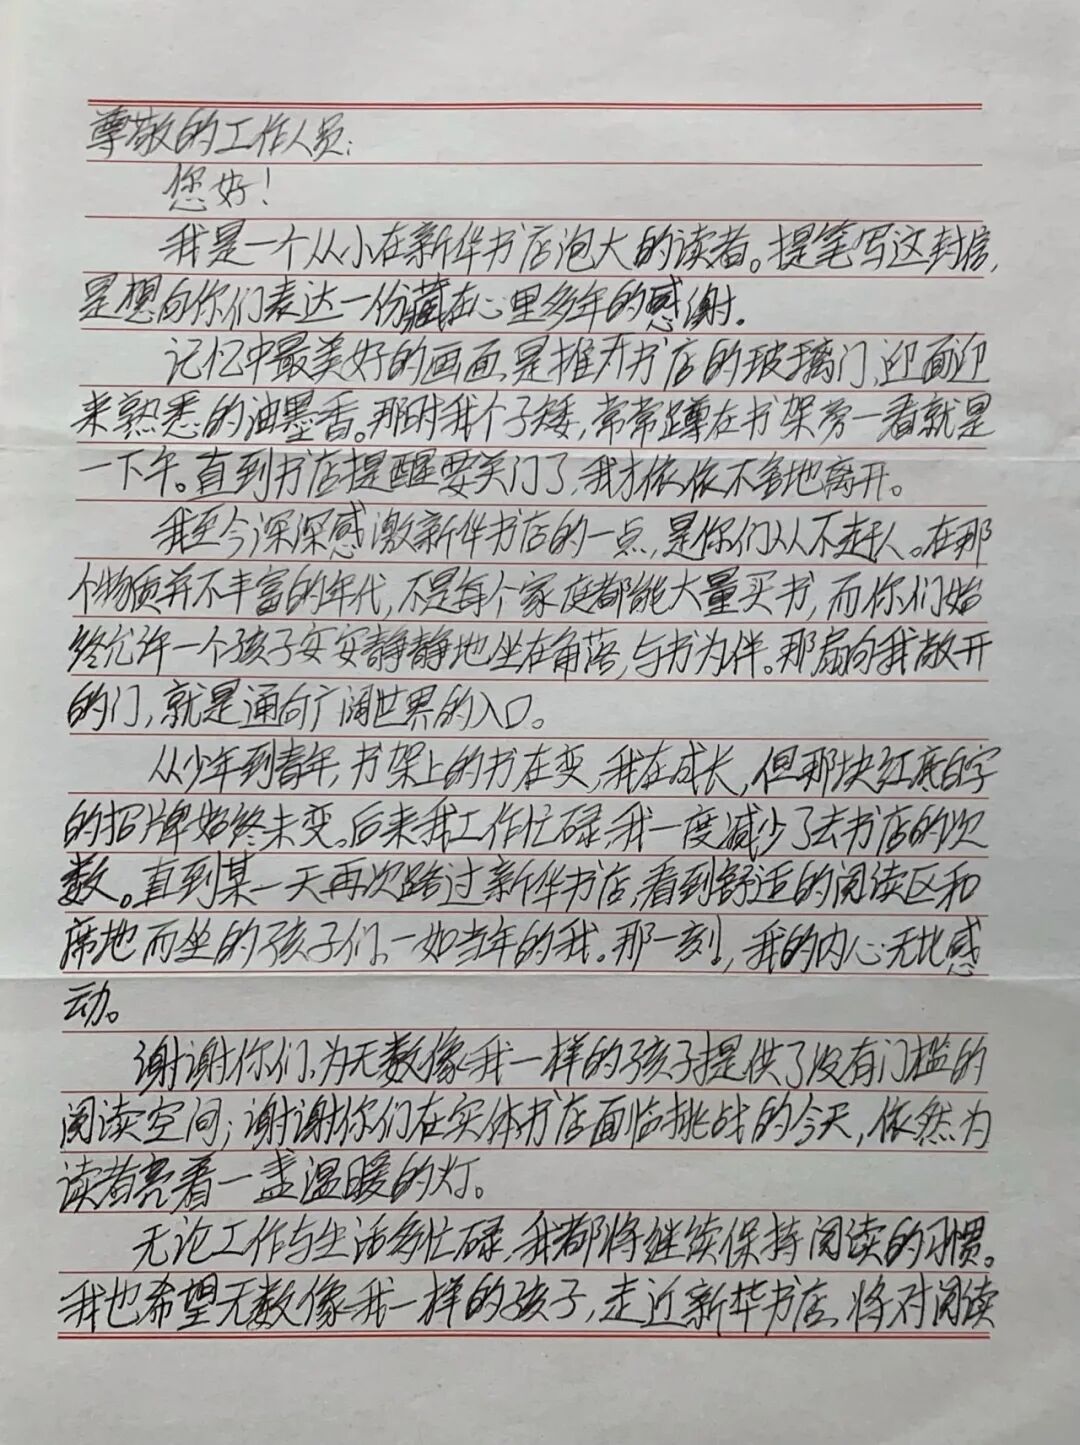 尊敬的工作人员：
您好！
我是一个从小在新华书店泡大的读者。提笔写这封信，
是想向你们表达一份藏在心里多年的感谢.
记忆中最美好的画面，是推开书店的玻璃门，迎面迎
来熟悉的油墨香。那时我个子矮，常常蹲在书架旁一看就是
一下午。直到书店提醒要关门了，我才依依不舍地离开。
我至今深深感激新华书店的一点，是你们从不赶人。在那
个物质并不丰富的年代，不是每个家庭都能大量买书，而你们始
终允许一个孩子安安静静地坐在角落，与书为伴。那扇向我敞开
的门，就是通向广阔世界的入口。
从少年到青年，书架上的书在变，我在成长，但那块红底白字
的招牌始终未变。后来我工作忙碌，我一度减少了去书店的次
数。直到某一天再次路过新华书店，看到舒适的阅读区和
席地而坐的孩子们，一如当年的我。那一刻，我的内心无比感
动。
谢谢你们，为无数像我一样的孩子提供了没有门槛的
阅读空间；谢谢你们在实体书店面临挑战的今天，依然为
读者亮着一盏温暖的灯。
无论工作与生活多忙碌，我都将继续保持阅读的习惯。
我也希望无数像我一样的孩子，走近新华书店，将对阅读